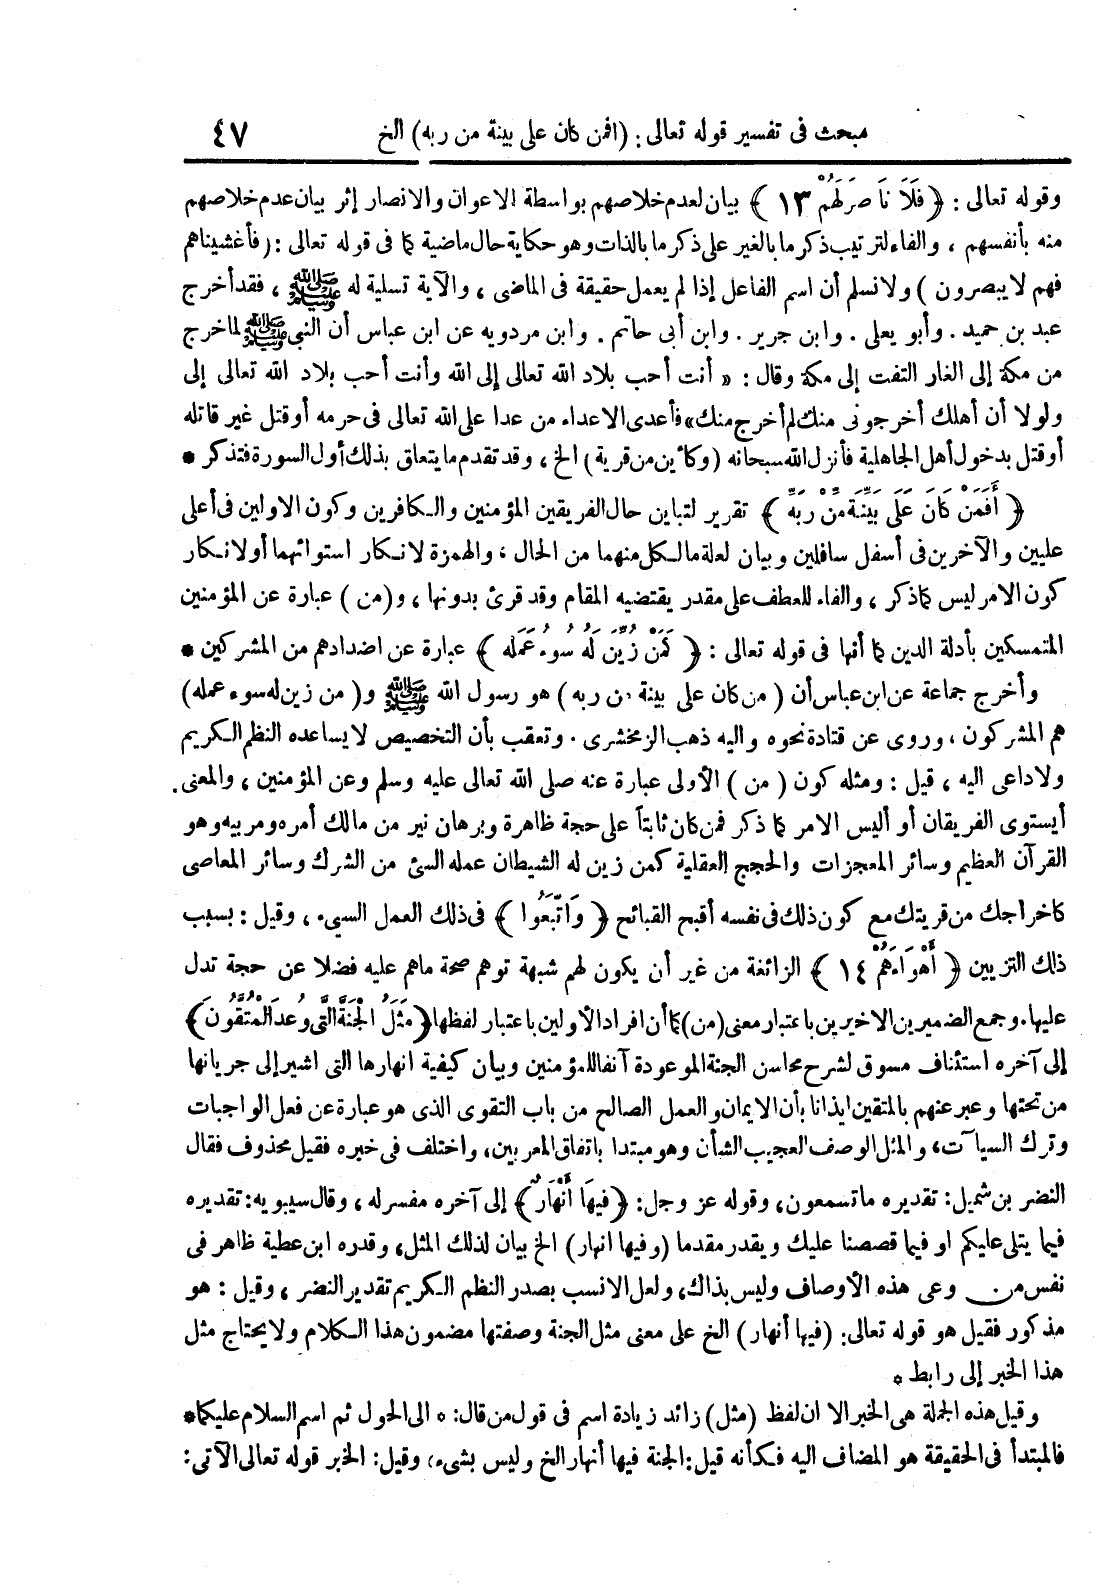 مبحث فى تفسير قوله تعالى : (افمن كان على بينة من ربه) الخ ٤٧
وقوله تعالى : ﴿ فَلَا نَاصِرَ لَهُمْ ١٣ ﴾ بيان لعدم خلاصهم بواسطة الاعوان والانصار إثر بيان عدم خلاصهم
منه بأنفسهم ، والفاء لترتيب ذكر ما بالغير على ذكر ما بالذات وهو حكاية حال ماضية كما فى قوله تعالى : ( فأغشيناهم
فهم لا يبصرون ) ولا نسلم أن اسم الفاعل إذا لم يعمل حقيقة فى الماضى ، والآية تسلية له ﷺ ، فقد أخرج
عبد بن حميد . وأبو يعلى . وابن جرير . وابن أبى حاتم . وابن مردويه عن ابن عباس أن النبى ﷺ لما خرج
من مكة إلى الغار التفت إلى مكة وقال : « أنت أحب بلاد الله تعالى إلى الله وأنت أحب بلاد الله تعالى إلى
ولولا أن أهلك أخرجونى منك لم أخرج منك» فأعدى الاعداء من عدا على الله تعالى فى حرمه أو قتل غير قاتله
أو قتل بدخول أهل الجاهلية فأنزل الله سبحانه (وكأين من قرية) الخ ، وقد تقدم ما يتعلق بذلك أول السورة فتذكر *
﴿ أَفَمَنْ كَانَ عَلَى بَيِّنَة مِّنْ رَبِّه ﴾ تقرير لتباين حال الفريقين المؤمنين والكافرين وكون الاولين فى أعلى
عليين والآخرين فى أسفل سافلين وبيان لعلة ما لكل منهما من الحال ، والهمزة لانكار استوائهما أو لانكار
كون الامر ليس كما ذكر ، والفاء للعطف على مقدر يقتضيه المقام وقد قرئ بدونها ، و(من ) عبارة عن المؤمنين
المتمسكين بأدلة الدين كما أنها فى قوله تعالى : ﴿ كَمَنْ زُيِّنَ لَهُ سُوءُ عَمَله ﴾ عبارة عن اضدادهم من المشركين *
وأخرج جماعة عن ابن عباس أن ( من كان على بينة من ربه ) هو رسول الله ﷺ و( من زين له سوء عمله )
هم المشركون ، وروى عن قتادة نحوه واليه ذهب الزمخشرى . وتعقب بأن التخصيص لا يساعده النظم الكريم
ولا داعى اليه ، قيل : ومثله كون ( من ) الأولى عبارة عنه صلى الله تعالى عليه وسلم وعن المؤمنين ، والمعنى .
أيستوى الفريقان أو أليس الامر كما ذكر فمن كان ثابتاً على حجة ظاهرة وبرهان نير من مالك أمره ومربيه وهو
القرآن العظيم وسائر المعجزات والحجج العقلية كمن زين له الشيطان عمله السئ من الشرك وسائر المعاصى
كاخراجك من قريتك مع كون ذلك فى نفسه أقبح القبائح ﴿ وَاتَّبَعُوا ﴾ فى ذلك العمل السيء ، وقيل : بسبب
ذلك التزيين ﴿ أَهْوَاءَهُمْ ١٤ ﴾ الزائغة من غير أن يكون لهم شبهة توهم صحة ماهم عليه فضلا عن حجة تدل
عليها . وجمع الضميرين الاخيرين باعتبار معنى (من) كما أن افراد الأولين باعتبار لفظها ﴿ مَثَلُ الْجَنَّة الَّتى وُعدَ الْمُتَّقُونَ ﴾
إلى آخره استئناف مسوق لشرح محاسن الجنة الموعودة آنفا للمؤمنين وبيان كيفية انهارها التى اشير إلى جريانها
من تحتها وعبر عنهم بالمتقين ايذانا بأن الايمان والعمل الصالح من باب التقوى الذى هو عبارة عن فعل الواجبات
وترك السيآت ، والمثل الوصف العجيب الشأن وهو مبتدا باتفاق المعربين ، واختلف فى خبره فقيل محذوف فقال
النضر بن شميل : تقديره ما تسمعون ، وقوله عز وجل : ﴿ فيهَا أَنْهَارٌ ﴾ إلى آخره مفسر له ، وقال سيبويه : تقديره
فيما يتلى عليكم او فيما قصصنا عليك ويقدر مقدما (وفيها انهار) الخ بيان لذلك المثل ، وقدره ابن عطية ظاهر فى
نفس من وعى هذه الأوصاف وليس بذاك ، ولعل الانسب بصدر النظم الكريم تقدير النضر ، وقيل : هو
مذكور فقيل هو قوله تعالى : (فيها أنهار) الخ على معنى مثل الجنة وصفتها مضمون هذا الكلام ولا يحتاج مثل
هذا الخبر إلى رابط *
وقيل هذه الجملة هى الخبر الا ان لفظ (مثل) زائد زيادة اسم فى قول من قال : * الى الحول ثم اسم السلام عليكما *
فالمبتدأ فى الحقيقة هو المضاف اليه فكأنه قيل : الجنة فيها أنهار الخ وليس بشىء ، وقيل : الخبر قوله تعالى الآتى :